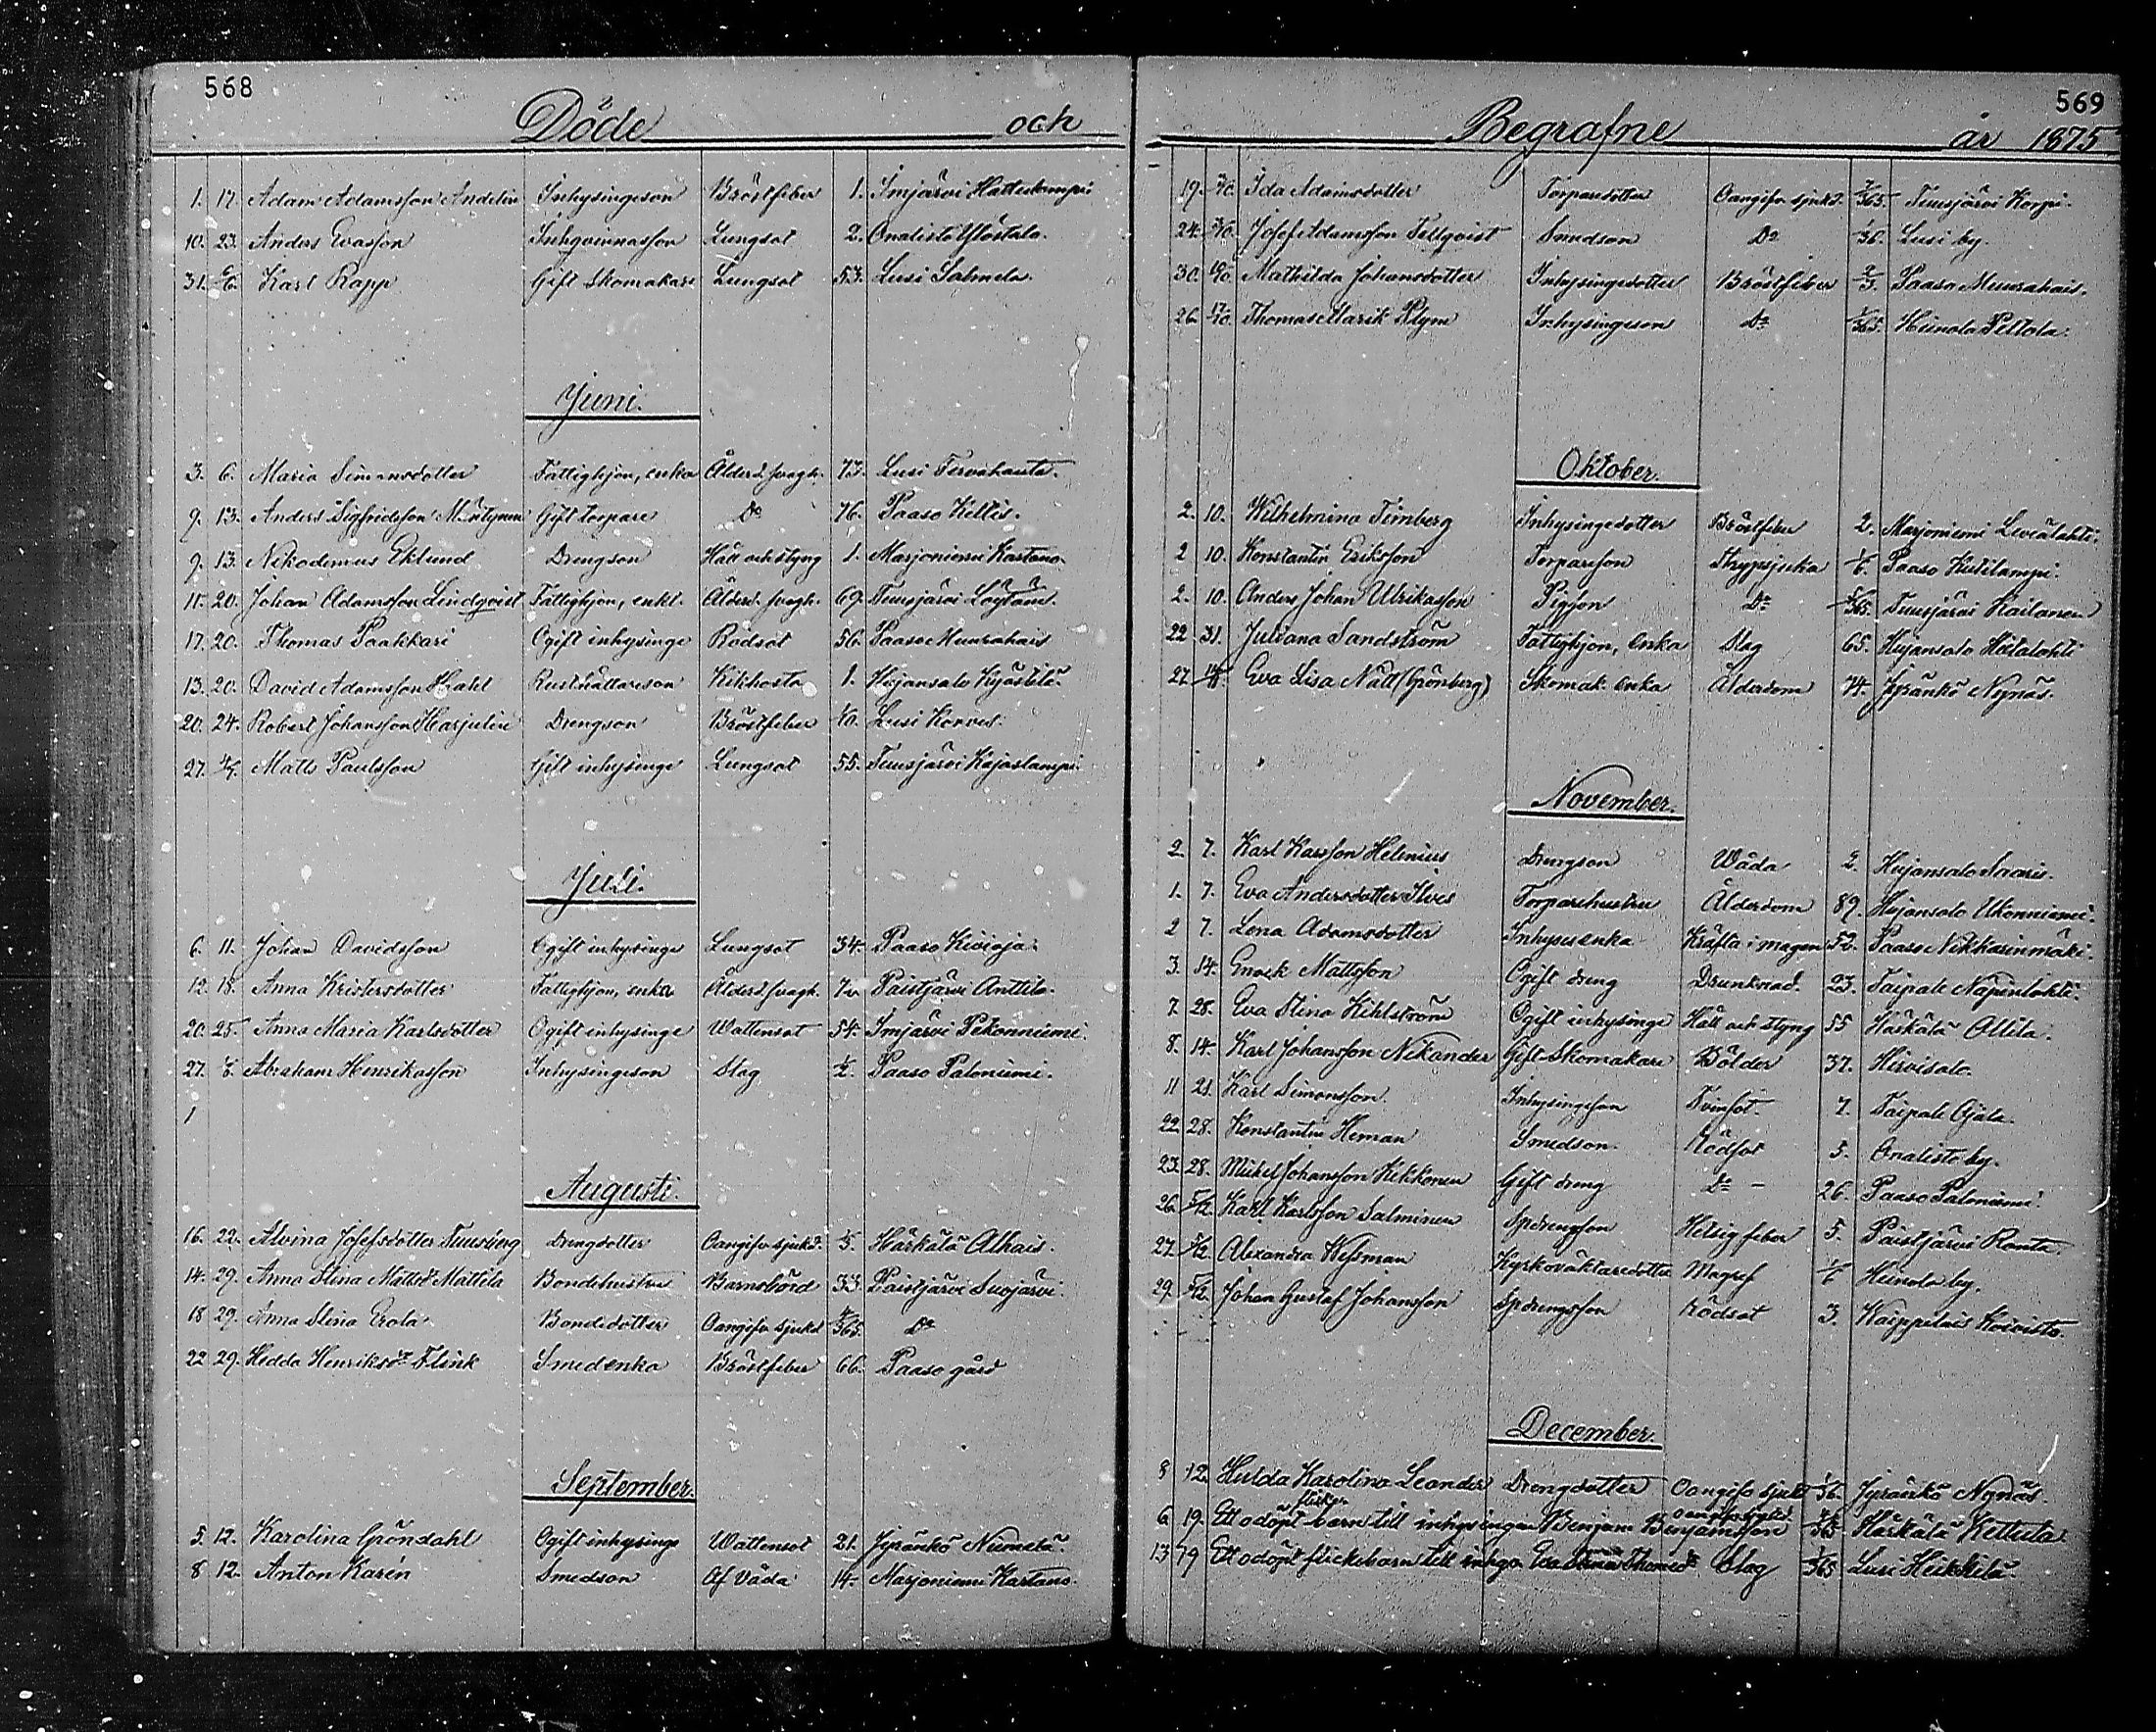 568
Döde och
1. 17. Adam Adamsson Andelin Inhysingeson Bröstfeber 1. Imjärvi Hattulampi
10. 23. Anders Evasson Inhqvinnasson Lungsot 2. Onalisto Ylöstalo.
31. 6/6. Karl Rapp Gift Skomakare Lungsot 53. Lusi Salmela
Juni.
3. 6. Maria Simonsdotter Fattighjon, enka Ålderd. svagh. 73. Lusi Tervahauta.
9. 13. Anders Sigfridsson Mäntynen Gift torpare Do 76. Paaso Keltis.
9. 13. Nikodemus Eklund Drengson Håll och styng 1. Marjoniemi Kartano
11. 20. Johan Adamsson Lindqvist Fattighjon, enkl. Ålderd. svagh. 69. Tuusjärvi Löytänä.
17. 20. Thomas Paakkari Ogift inhysinge Rödsot 56. Paaso Muurahais
13. 20. David Adamsson Hahl Rusthållareson Kikhosta 1. Hujansalo Kjöstilä.
20. 24. Robert Johansson Harjulin Drengson Bröstfeber 1/10. Lusi Korves.
27. 4/7. Matts Paulsson Gift inhysinge Lungsot 55. Tuusjärvi Kajaslampi.
Juli.
6. 11. Johan Davidsson Ogift inhysinge Lungsot 34. Paaso Kivioja.
12. 18. Anna Kristersdotter Fattighjon, enka Ålderd. svagh. 72. Paistjärvi Anttila.
20. 25. Anna Maria Karlsdotter Ogift inhysinge Wattensot 54. Imjärvi Pekonniemi.
27. Abraham Henriksson Inhysingeson Slag 1/2. Paaso Paloniemi.
1
Augusti.
16. 22. Alvina Josefsdotter Tuusberg Drengdotter Oangifv. sjukd. Härkälä Alhais.
14. 29. Anna Stina Mattsdr Mattila Bondehustru Barnsbörd 33. Paistjärvi Suojärvi.
18 29. Anna Stina Erola Bondedotter Oangifv. sjukd. Do
22 29. Hedda Henriksdr Flink Smedenka Bröstfeber 66. Paaso gård
September.
5. 12. Karolina Gröndahl Ogift inhysinge Wattensot 21. Jyränkö Niemelä.
8 12. Anton Karén Smedson Af våda 14. Marjoniemi Kartano.
569
Begrafne år 1875
19. Ida Adamsdotter Torparedotter Oangifv. sjukd. 7/365. Tuusjärvi Korpi.
24. 3/10. Josef Adamsson Tallqvist Smedson Do Lusi by.
30. Mathilda Johansdotter Inhysingedotter Bröstfeber 2/3. Paaso Muurahais.
26. Thomas Marik Plym Inhysingeson Do Heinola Peltola.
Oktober.
2. 10. Wilhelmina Timberg Inhysingedotter Bröstfeber 2. Marjoniemi Leviälahti.
2 10. Konstantin Eriksson Torpareson Strypsjuka Paaso Kutilampi.
2. 10. Anders Johan Ulrikasson Pigson Do Tuusjärvi Kailanen
22 31. Juliana Sandström Fattighjon, Enka Slag 65. Hujansalo Hietalahti
27. Eva Lisa Nätt (Grönberg) Skomak. Enka Ålderdom 74. Jyränkö Nynäs.
November.
2. 7. Karl Karsson Helenius Drengson Wåda 2. Hujansalo Saaris.
1. 7. Eva Andersdotter Ilves Torparehustru Ålderdom 89. Hujansalo Ukonniemi.
2 7. Lena Adamsdotter Inhyses enka Kräfta i magen 52. Paaso Nikkarinmäki.
3. 14. Enock Mattsson Ogift dreng Drunknad. 23. Taipale Näpinlahti.
7. 28. Eva Stina Kihlström Ogift inhysinge Håll och styng 55 Härkälä Ollila.
8. 14. Karl Johansson Nikander Gift Skomakare Bölder 37. Hirvisalo.
11 21. Karl Simonsson. Inhysingson Tvinsot. 7. Taipale Ojala.
22 28. Konstantin Heman Smedson. Rödsot 5. Onalisto by.
23. 28. Mikel Johansson Kekkonen Gift dreng Do - 26. Paaso Paloniemi.
26. 5/12. Karl Karlsson Salminen Spdrengson Hetsig feber 5. Paistjärvi Ronta.
27. 5/12. Alexandra Wessman Kyrkovaktaredotter Magref Heinola by.
29. 5/12. Johan Gustaf Johansson Spdrengsson Rödsot 3. Kaippilais Koivisto.
December.
8 12. Hulda Karolina Leander Drengdotter Oangifv. sjukd. Jyränkö Nynäs.
flicke oangifv. sjukd.
6 19. Ett odöpt barn till inhysingen Benjam Benjamsson Härkälä Kettula.
13 19 Ett odöpt flickebarn till inhqv. Eva Stina Thomasdr Slag 1/365 Lusi Heikkilä